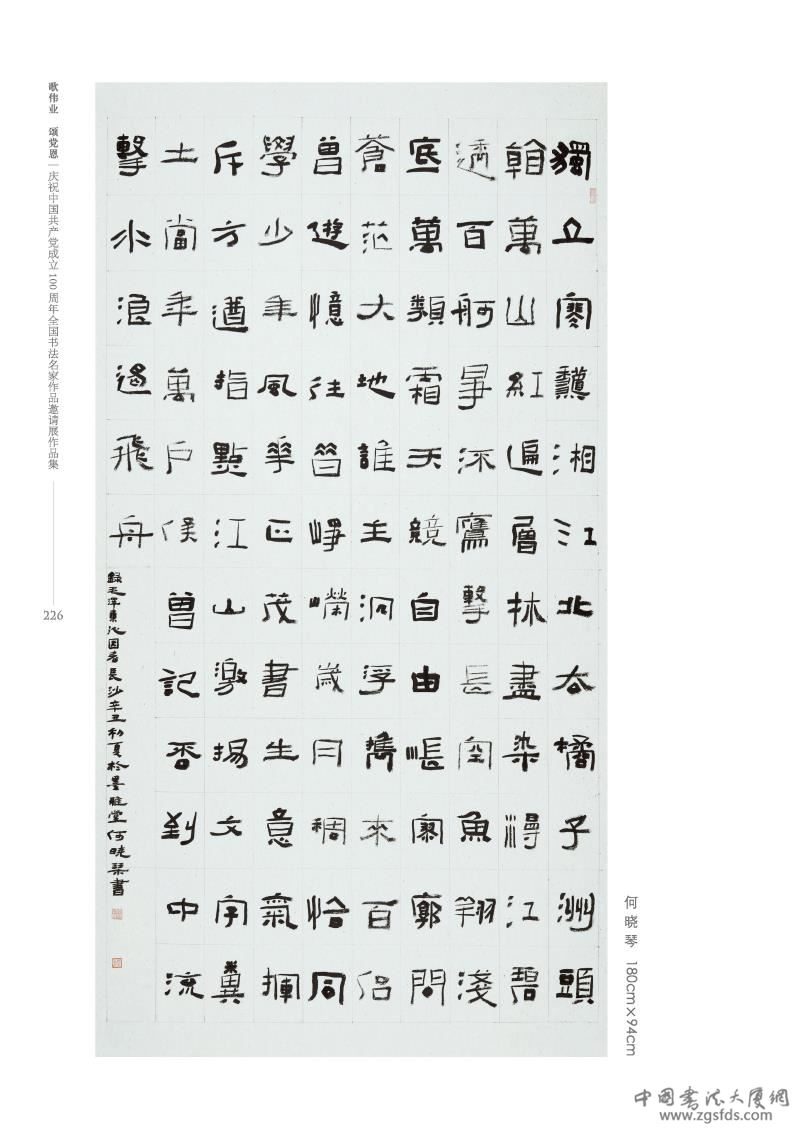 歌伟业 颂党恩 | 庆祝中国共产党成立100周年全国书法名家作品邀请展作品集
226
獨立寒龝湘江北去橘子洲頭
看萬山紅遍層林盡染漫江碧
透百舸爭流鷹擊長空魚翔淺
底萬類霜天競自由悵寥廓問
蒼茫大地誰主沉浮攜來百侶
曾遊憶往昔崢嶸歲月稠恰同
學少年風華正茂書生意氣揮
斥方遒指點江山激揚文字糞
土當年萬戶侯曾記否到中流
擊水浪遏飛舟
錄毛澤東沁園春長沙辛丑初夏於墨雅堂何曉琴書
何晓琴 180cm×94cm
中国书法大厦網
www.zgsfds.com